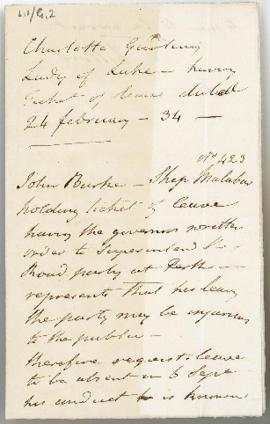 L1/G.2
Charlotte
Lady of Luke – having
Ticket of leave dated
24 february – 34 –
No 423
John Burke – Ship Malabar
holding ticket of leave
having the governors written
order to superintend
Road party at Perth –
represents that his leaving
the party may be injurious
to the public –
therefore requests leave
to be absent on 6 Sept
his conduct is known